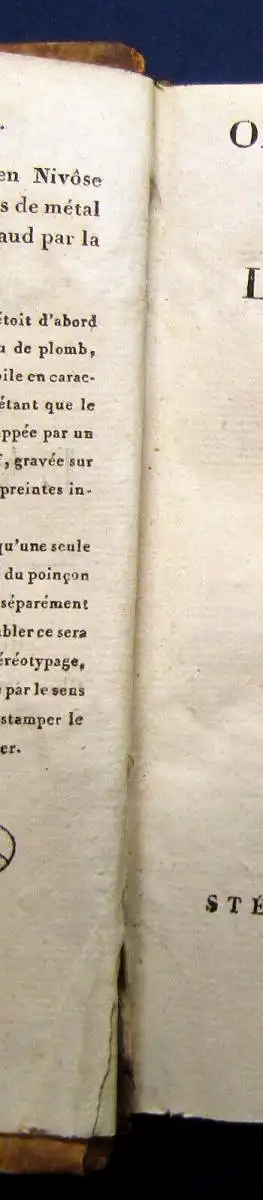 en Nivôse
s de métal
aud par la
étoit d'abord
u de plomb,
bile en carac-
étant que le
appée par un
f, gravée sur
preintes in-
qu'une seule
du poinçon
séparément
ablerce sera
éréotypage,
par le sens
stamper le
er.
O
L
STÉ